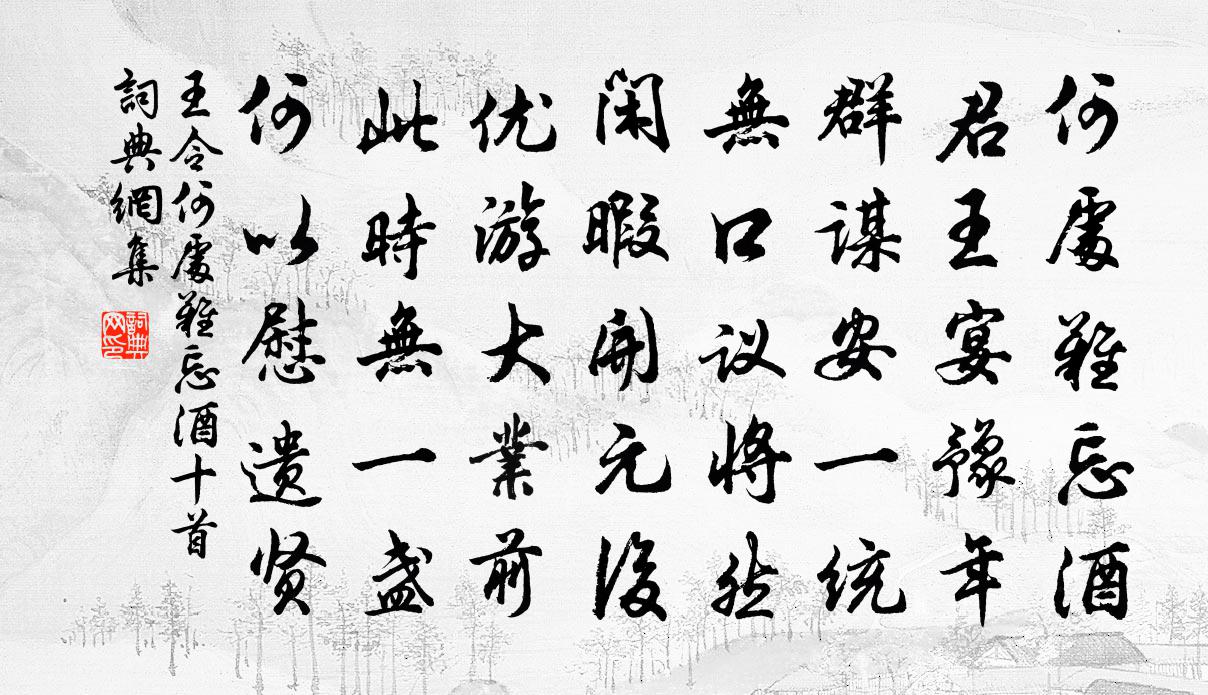 何處難忘酒
君王宴豫年
群謀安一統
無口议將然
闲暇開元後
优游大業前
此時無一盏
何以慰遗贤
王令何處難忘酒十首
詞典網集
詞典網印